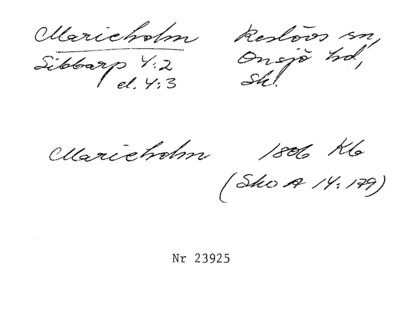 Marieholm Reslövs sn,
Sibbarp 4:2 Onsjö hd,
el. 4:3 Sk.
Marieholm 1806 Kb
(Sko A 14:179)
Nr 23925